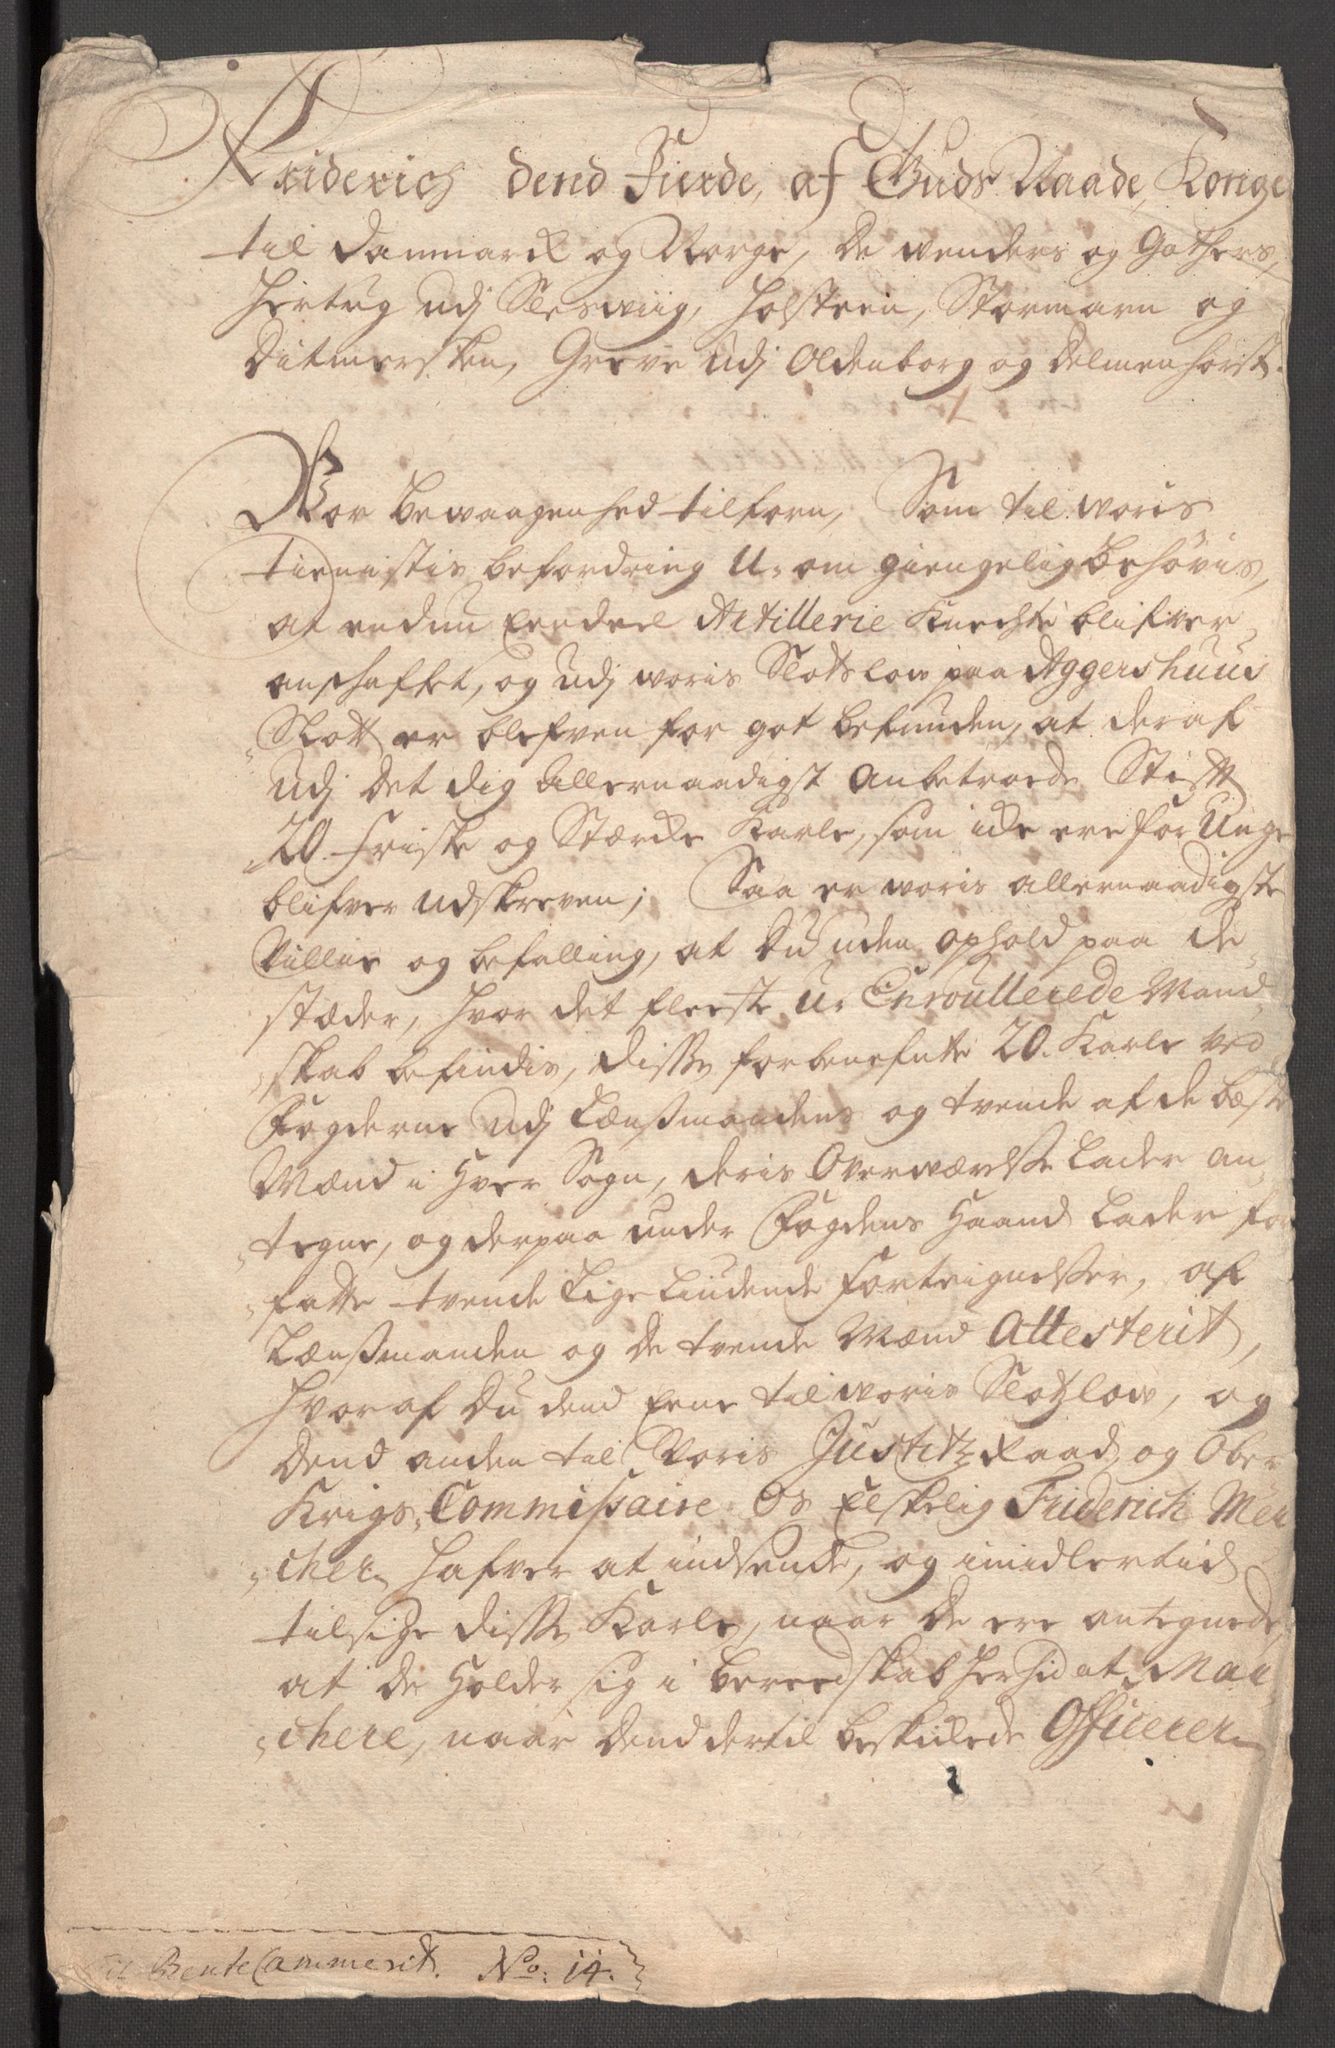 Friderich dend Fierde, af Guds Naade, Konge
til Danmarck og Norge, de Wenders og Gothers,
Hertug udj Slesswiig, Holsteen, Stormarn og
Ditmersken, Greve udj Oldenborg og Delmenhorst.
Vor bewaagenhed tilforn, Som til woris
tienistis befordring U-omgiengelig behøvis,
at endnu Eendeel Artillerie Knechte blifver
anschaffet, og udj woris Slotslow paa Aggershuus
Slott er blefven for got befunden, at deraf
udj det dig allernaadigst anbetroede Stift
20. friske og Stærcke Karle, som icke ere for Unge
blifver udskreven; Saa er woris allernaadigste
Villie og befalling, at Du uden ophold paa de
stæder, hvor det fleeste u-Enroullerede Mand-
skab befindis, disse forbenefnte 20. Karle ved
Fogderne udj Lænßmandens og tvende af de beste
Mænd i hver Sogn, deris Overwærelse lader an-
tegne, og derpaa under Fogdens Haand lader for-
fatte tvende lige liudende Forteignelser, af
Lænßmanden og de tvende Mænd Attesterit,
hvoraf Du dend Eene til woris Slotzlow, og
dend anden til Voris Justitz Raad, og Ober
Krigs Commissaire Os Elskelig Friderich Mer-
cher hafver at indsende, og imidlertid
tilsige disse Karle, naar de ere antegnede,
at de holder sig i bereedskab herhid at Mar-
chere, naar dend dertil beskickede Officerer
til Rente Cammerit. No: 14.